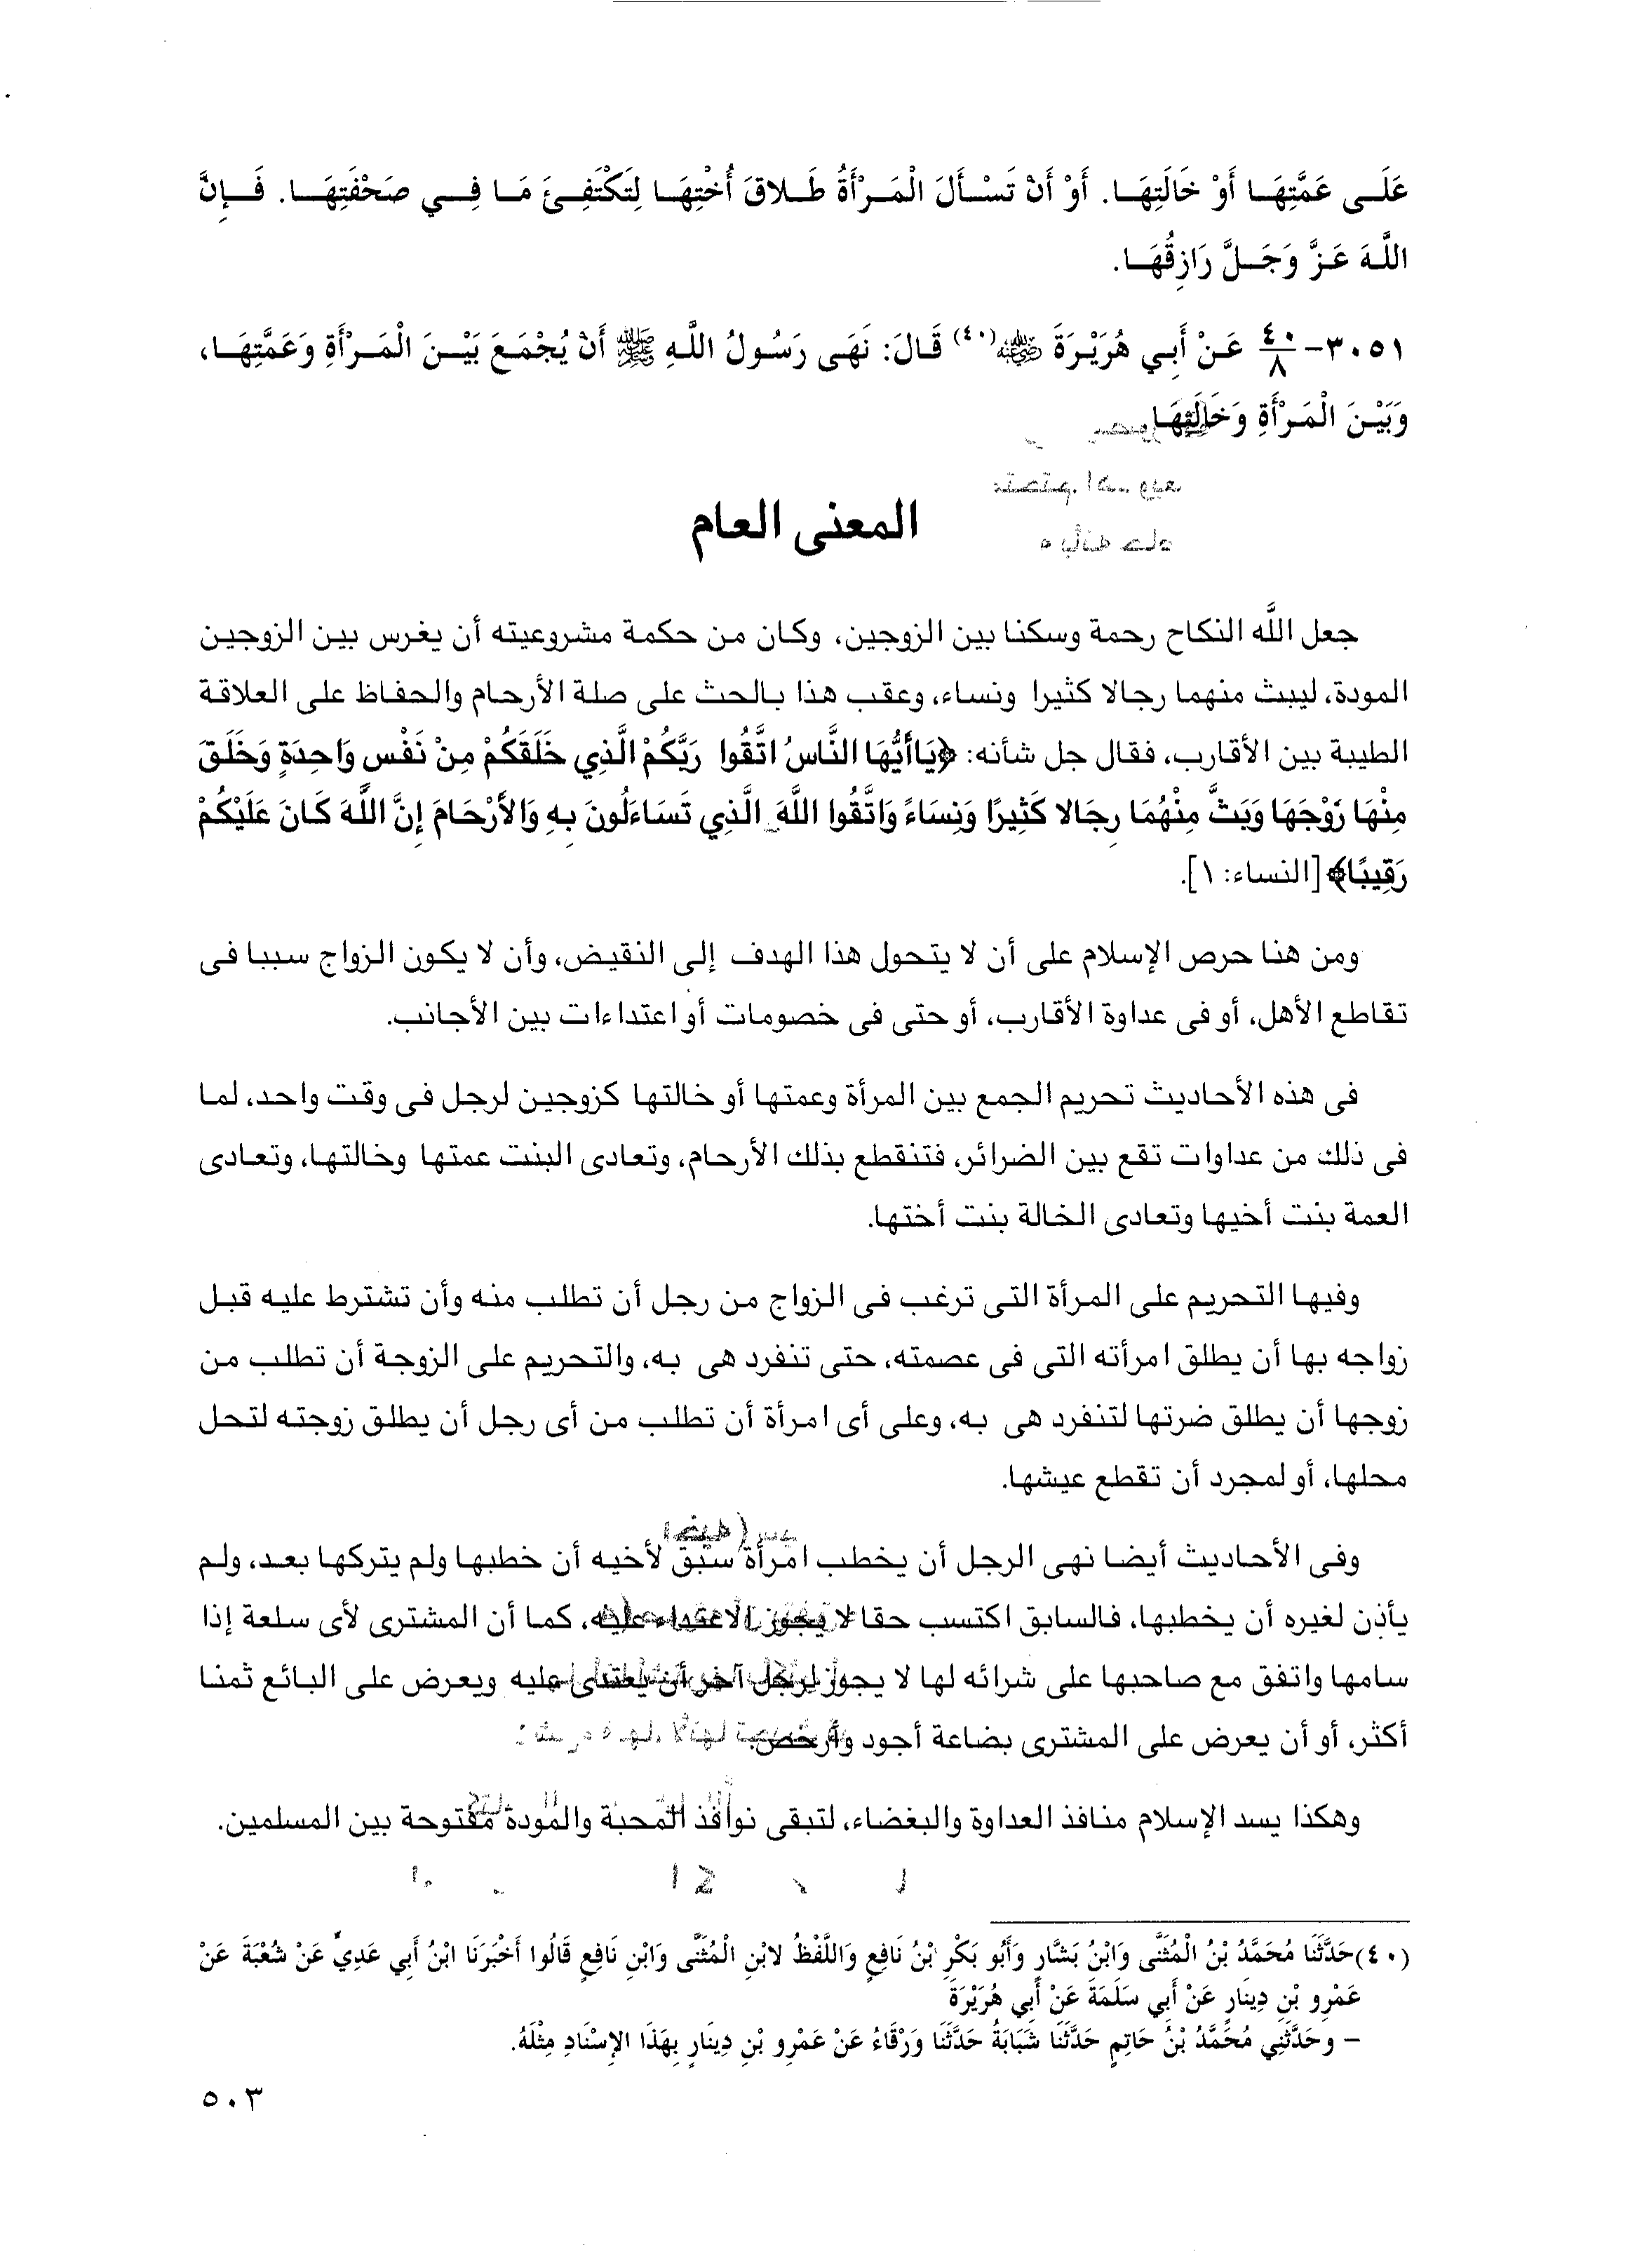 عَلَى عَمَّتِهَا أَوْ خَالَتِهَا. أَوْ أَنْ تَسْأَلَ الْمَرْأَةُ طَلاقَ أُخْتِهَا لِتَكْتَفِئَ مَا فِي صَحْفَتِهَا. فَإِنَّ
اللَّهَ عَزَّ وَجَلَّ رَازِقُهَا.
٣٠٥١- ٤٠/٨ عَنْ أَبِي هُرَيْرَةَ ﵁(٤٠) قَالَ: نَهَى رَسُولُ اللَّهِ ﷺ أَنْ يُجْمَعَ بَيْنَ الْمَرْأَةِ وَعَمَّتِهَا،
وَبَيْنَ الْمَرْأَةِ وَخَالَتِهَا
المعنى العام
جعل اللَّه النكاح رحمة وسكنا بين الزوجين، وكان من حكمة مشروعيته أن يغرس بين الزوجين
المودة، ليبث منهما رجالا كثيرا ونساء، وعقب هذا بالحث على صلة الأرحام والحفاظ على العلاقة
الطيبة بين الأقارب، فقال جل شأنه: ﴿يَاأَيُّهَا النَّاسُ اتَّقُوا رَبَّكُمْ الَّذِي خَلَقَكُمْ مِنْ نَفْسٍ وَاحِدَةٍ وَخَلَقَ
مِنْهَا زَوْجَهَا وَبَثَّ مِنْهُمَا رِجَالا كَثِيرًا وَنِسَاءً وَاتَّقُوا اللَّهَ الَّذِي تَسَاءَلُونَ بِهِ وَالأَرْحَامَ إِنَّ اللَّهَ كَانَ عَلَيْكُمْ
رَقِيبًا﴾ [النساء: ١].
ومن هنا حرص الإسلام على أن لا يتحول هذا الهدف إلى النقيض، وأن لا يكون الزواج سببا فى
تقاطع الأهل، أو فى عداوة الأقارب، أو حتى فى خصومات أو اعتداءات بين الأجانب.
فى هذه الأحاديث تحريم الجمع بين المرأة وعمتها أو خالتها كزوجين لرجل فى وقت واحد، لما
فى ذلك من عداوات تقع بين الضرائر، فتنقطع بذلك الأرحام، وتعادى البنت عمتها وخالتها، وتعادى
العمة بنت أخيها وتعادى الخالة بنت أختها.
وفيها التحريم على المرأة التى ترغب فى الزواج من رجل أن تطلب منه وأن تشترط عليه قبل
زواجه بها أن يطلق امرأته التى فى عصمته، حتى تنفرد هى به، والتحريم على الزوجة أن تطلب من
زوجها أن يطلق ضرتها لتنفرد هى به، وعلى أى امرأة أن تطلب من أى رجل أن يطلق زوجته لتحل
محلها، أو لمجرد أن تقطع عيشها.
وفى الأحاديث أيضا نهى الرجل أن يخطب امرأة سبق لأخيه أن خطبها ولم يتركها بعد، ولم
يأذن لغيره أن يخطبها، فالسابق اكتسب حقا لا يجوز الاعتداء عليه، كما أن المشترى لأى سلعة إذا
سامها واتفق مع صاحبها على شرائه لها لا يجوز لرجل آخر أن يعتدى عليه ويعرض على البائع ثمنا
أكثر، أو أن يعرض على المشترى بضاعة أجود وأرخص.
وهكذا يسد الإسلام منافذ العداوة والبغضاء، لتبقى نوافذ المحبة والمودة مفتوحة بين المسلمين.
(٤٠) حَدَّثَنَا مُحَمَّدُ بْنُ الْمُثَنَّى وَابْنُ بَشَّارٍ وَأَبُو بَكْرِ بْنُ نَافِعٍ وَاللَّفْظُ لابْنِ الْمُثَنَّى وَابْنِ نَافِعٍ قَالُوا أَخْبَرَنَا ابْنُ أَبِي عَدِيٍّ عَنْ شُعْبَةَ عَنْ
عَمْرِو بْنِ دِينَارٍ عَنْ أَبِي سَلَمَةَ عَنْ أَبِي هُرَيْرَةَ
– وحَدَّثَنِي مُحَمَّدُ بْنُ حَاتِمٍ حَدَّثَنَا شَبَابَةُ حَدَّثَنَا وَرْقَاءُ عَنْ عَمْرِو بْنِ دِينَارٍ بِهَذَا الإِسْنَادِ مِثْلَهُ.
٥٠٣